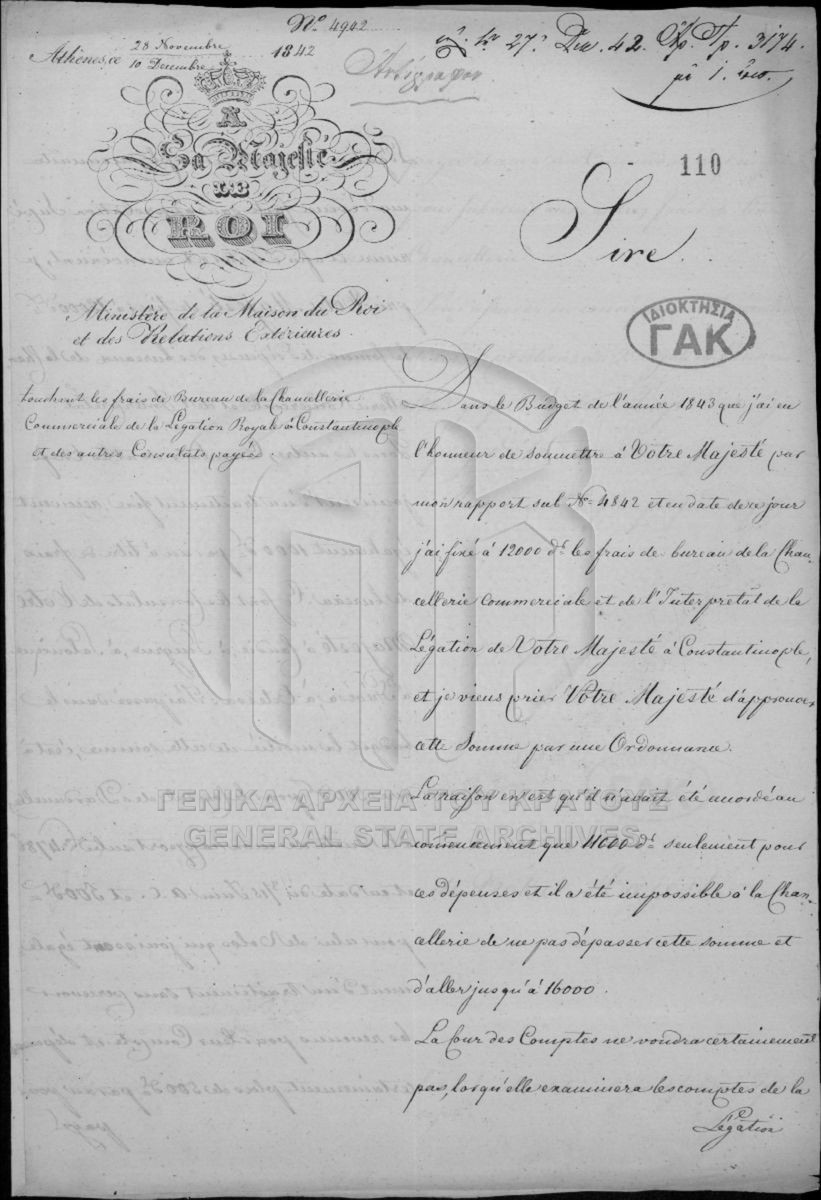 Nº 4942
Athènes, ce 28 Novembre / 10 Decembre 1842
27 Δεκ. 42. Ἀρ. Πρ. 3174.
Ἀντίγραφον
μὲ 1.
110
A
Sa Majesté
LE
ROI
Sire.
Ministère de la Maison du Roi
et des Relations Extérieures.
ΙΔΙΟΚΤΗΣΙΑ
ΓΑΚ
touchant les frais de Bureau de la Chancellerie
Commerciale de la Légation Royale à Constantinople
et des autres Consulats payés.
Dans le Budget de l'année 1843 que j'ai eu
l'honneur de soumettre à Votre Majesté par
mon rapport sub Nº 4842 et en date de ce jour
j'ai fixé à 12000 dr. les frais de bureau de la Chan-
cellerie Commerciale et de l'Interprétat de la
Légation de Votre Majesté à Constantinople,
et je viens prier Votre Majesté d'approuver
cette Somme par une Ordonnance.
La raison en est qu'il n'avait été accordé au
comencement que 11000 dr. seulement pour
ces dépenses et il a été impossible à la Chan-
cellerie de ne pas dépasser cette somme et
d'aller jusqu'à 16000.
La Cour des Comptes ne voudra certainement
pas, lorqu'elle examinera les comptes de la
Légation
ΓΕΝΙΚΑ ΑΡΧΕΙΑ ΤΟΥ ΚΡΑΤΟΥΣ
GENERAL STATE ARCHIVES